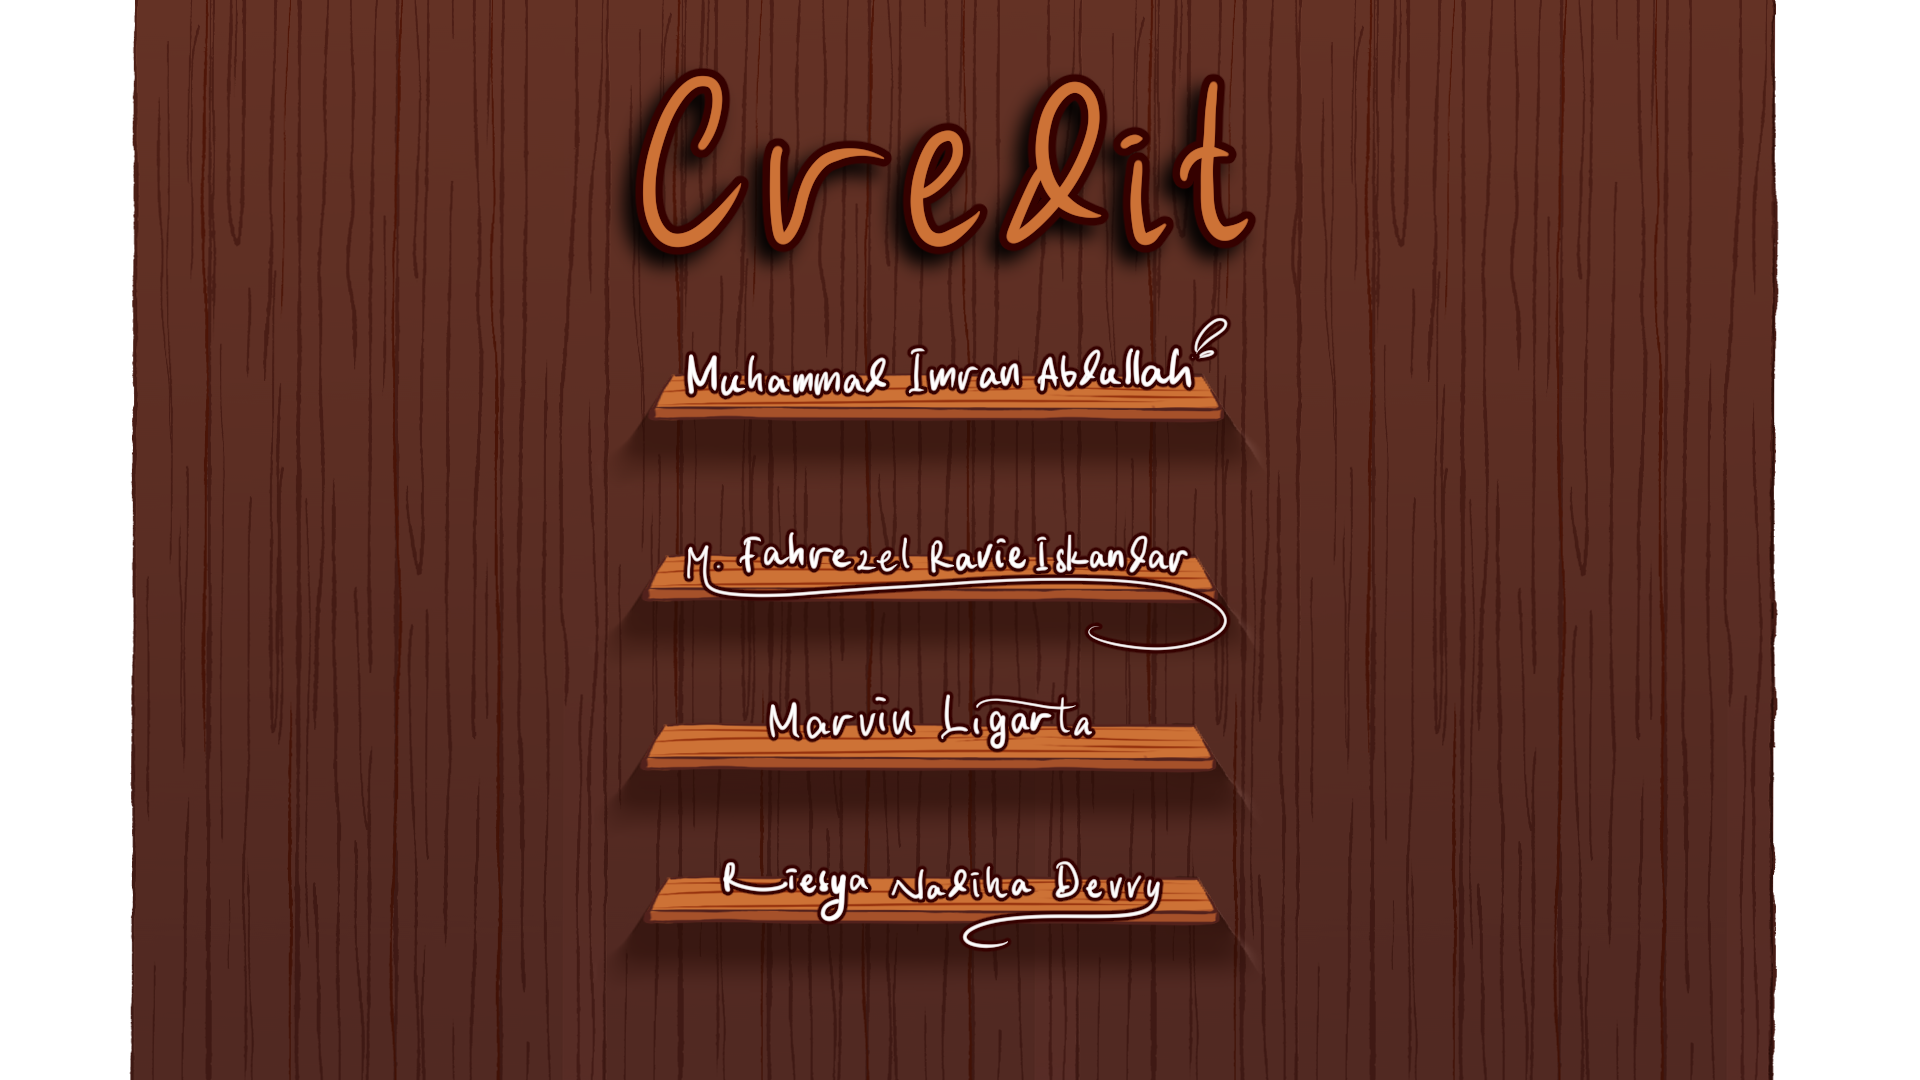 Credit
Muhammad Imran Abdullah
M. Fahrezel Ravie Iskandar
Marvin Ligarta
Riesya Nadiha Devry